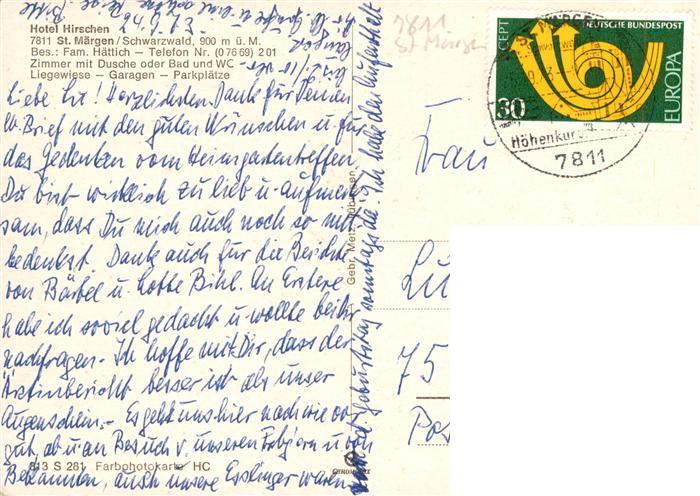 Hotel Hirschen
7811 St. Märgen/Schwarzwald, 900 m ü. M.
Bes.: Fam. Hättich – Telefon Nr. (07669) 201
Zimmer mit Dusche oder Bad und WC
Liegewiese – Garagen – Parkplätze
Liebe Herzlichsten Dank für Deinen
lb. Brief mit den guten Wünschen u. für
das Gedenken vom Heimgartentreffen.
Du bist wirklich zu lieb u. aufmerk
sam, dass Du mich auch noch so mit
bedenkst. Dank auch für die Berichte
von Bärbel u. Lotte Bihl. An Erstere
habe ich soviel gedacht u. wollte bei Dir
nachfragen – Ich hoffe mit Dir, dass der
Ärztinbericht besser ist als unser
Augenschein. – Es geht uns hier nach wie vor
gut, ab u. an Besuch v. unseren u. von
Bekannten, auch unsere Esslinger waren
Geburtstag sonntags da. Ich habe den Aufenthalt
813 S 281 Farbphotokarte HC
Gebr. Metz, Tübingen
7811
St. Märgen
CEPT
DEUTSCHE BUNDESPOST
EUROPA
30
Höhenkur
7811
Frau
75